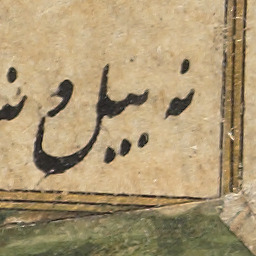 نه بیل و نه